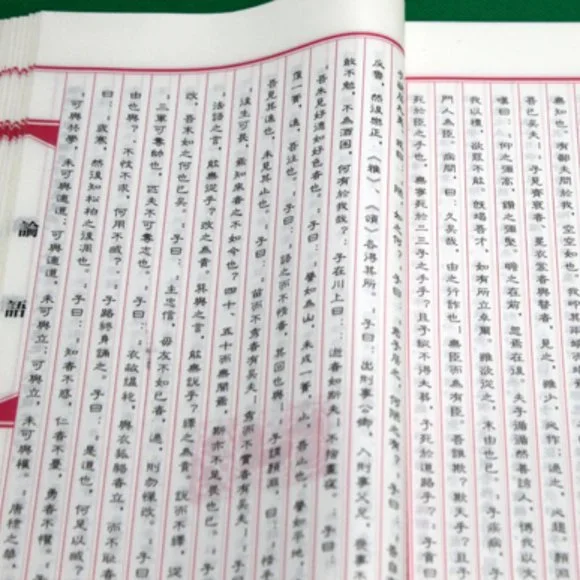 無知也。有鄙夫問於我，空空如也。我叩其
吾已矣夫！」子見齊衰者、冕衣裳者與瞽者，見之，雖少，必作；過之，必趨。顏淵
嘆曰：「仰之彌高，鑽之彌堅。瞻之在前，忽焉在後。夫子循循然善誘人，博我以文
我以禮，欲罷不能，既竭吾才，如有所立卓爾，雖欲從之，末由也已。」子疾病，子
門人為臣。病間，曰：「久矣哉，由之行詐也！無臣而為有臣，吾誰欺？欺天乎？且
死於臣之手也，無寧死於二三子之手乎？且予縱不得大葬，予死於道路乎？」子貢曰
如之何？」子曰：「君子居之，何陋之有？」子曰：「吾自
反魯，然後樂正，《雅》《頌》各得其所。」子曰：「出則事公卿，入則事父兄，喪
敢不勉，不為酒困，何有於我哉？」子在川上曰：「逝者如斯夫！不捨晝夜。」子曰
「吾未見好德如好色者也。」子曰：「譬如為山，未成一簣，止，吾止也。譬如平地，
覆一簣，進，吾往也。」子曰：「語之而不惰者，其回也與！」子謂顏淵，曰：「惜
吾見其進也，未見其止也。」子曰：「苗而不秀者有矣夫！秀而不實者有矣夫！」
後生可畏，焉知來者之不如今也？四十、五十而無聞焉，斯亦不足畏也已。」子曰
「法語之言，能無從乎？改之為貴。巽與之言，能無說乎？繹之為貴。說而不繹，從
改，吾末如之何也已矣。」子曰：「主忠信，毋友不如己者，過，則勿憚改。
「三軍可奪帥也，匹夫不可奪志也。」子曰：「衣敝縕袍，與衣狐貉者立，而不恥者
由也與？『不忮不求，何用不臧？』」子路終身誦之。子曰：「是道也，何足以臧？
曰：「歲寒，然後知松柏之後凋也。」子曰：「知者不惑，仁者不憂，勇者不懼。
「可與共學，未可與適道；可與適道，未可與立；可與立，未可與權。」「唐棣之華
論語